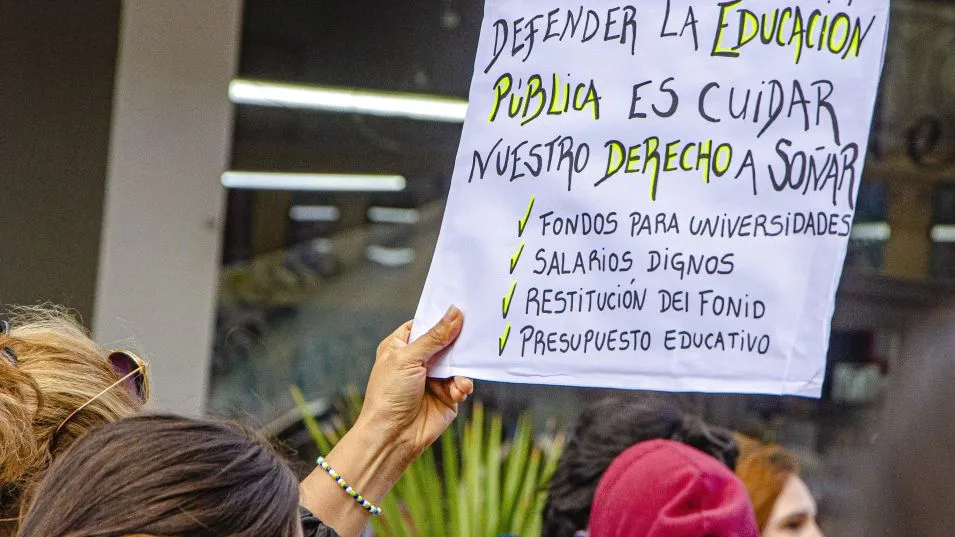 DEFENDER LA EDUCACIÓN
PÚBLICA ES CUIDAR
NUESTRO DERECHO A SOÑAR
✓ FONDOS PARA UNIVERSIDADES
✓ SALARIOS DIGNOS
✓ RESTITUCIÓN DEL FONID
✓ PRESUPUESTO EDUCATIVO